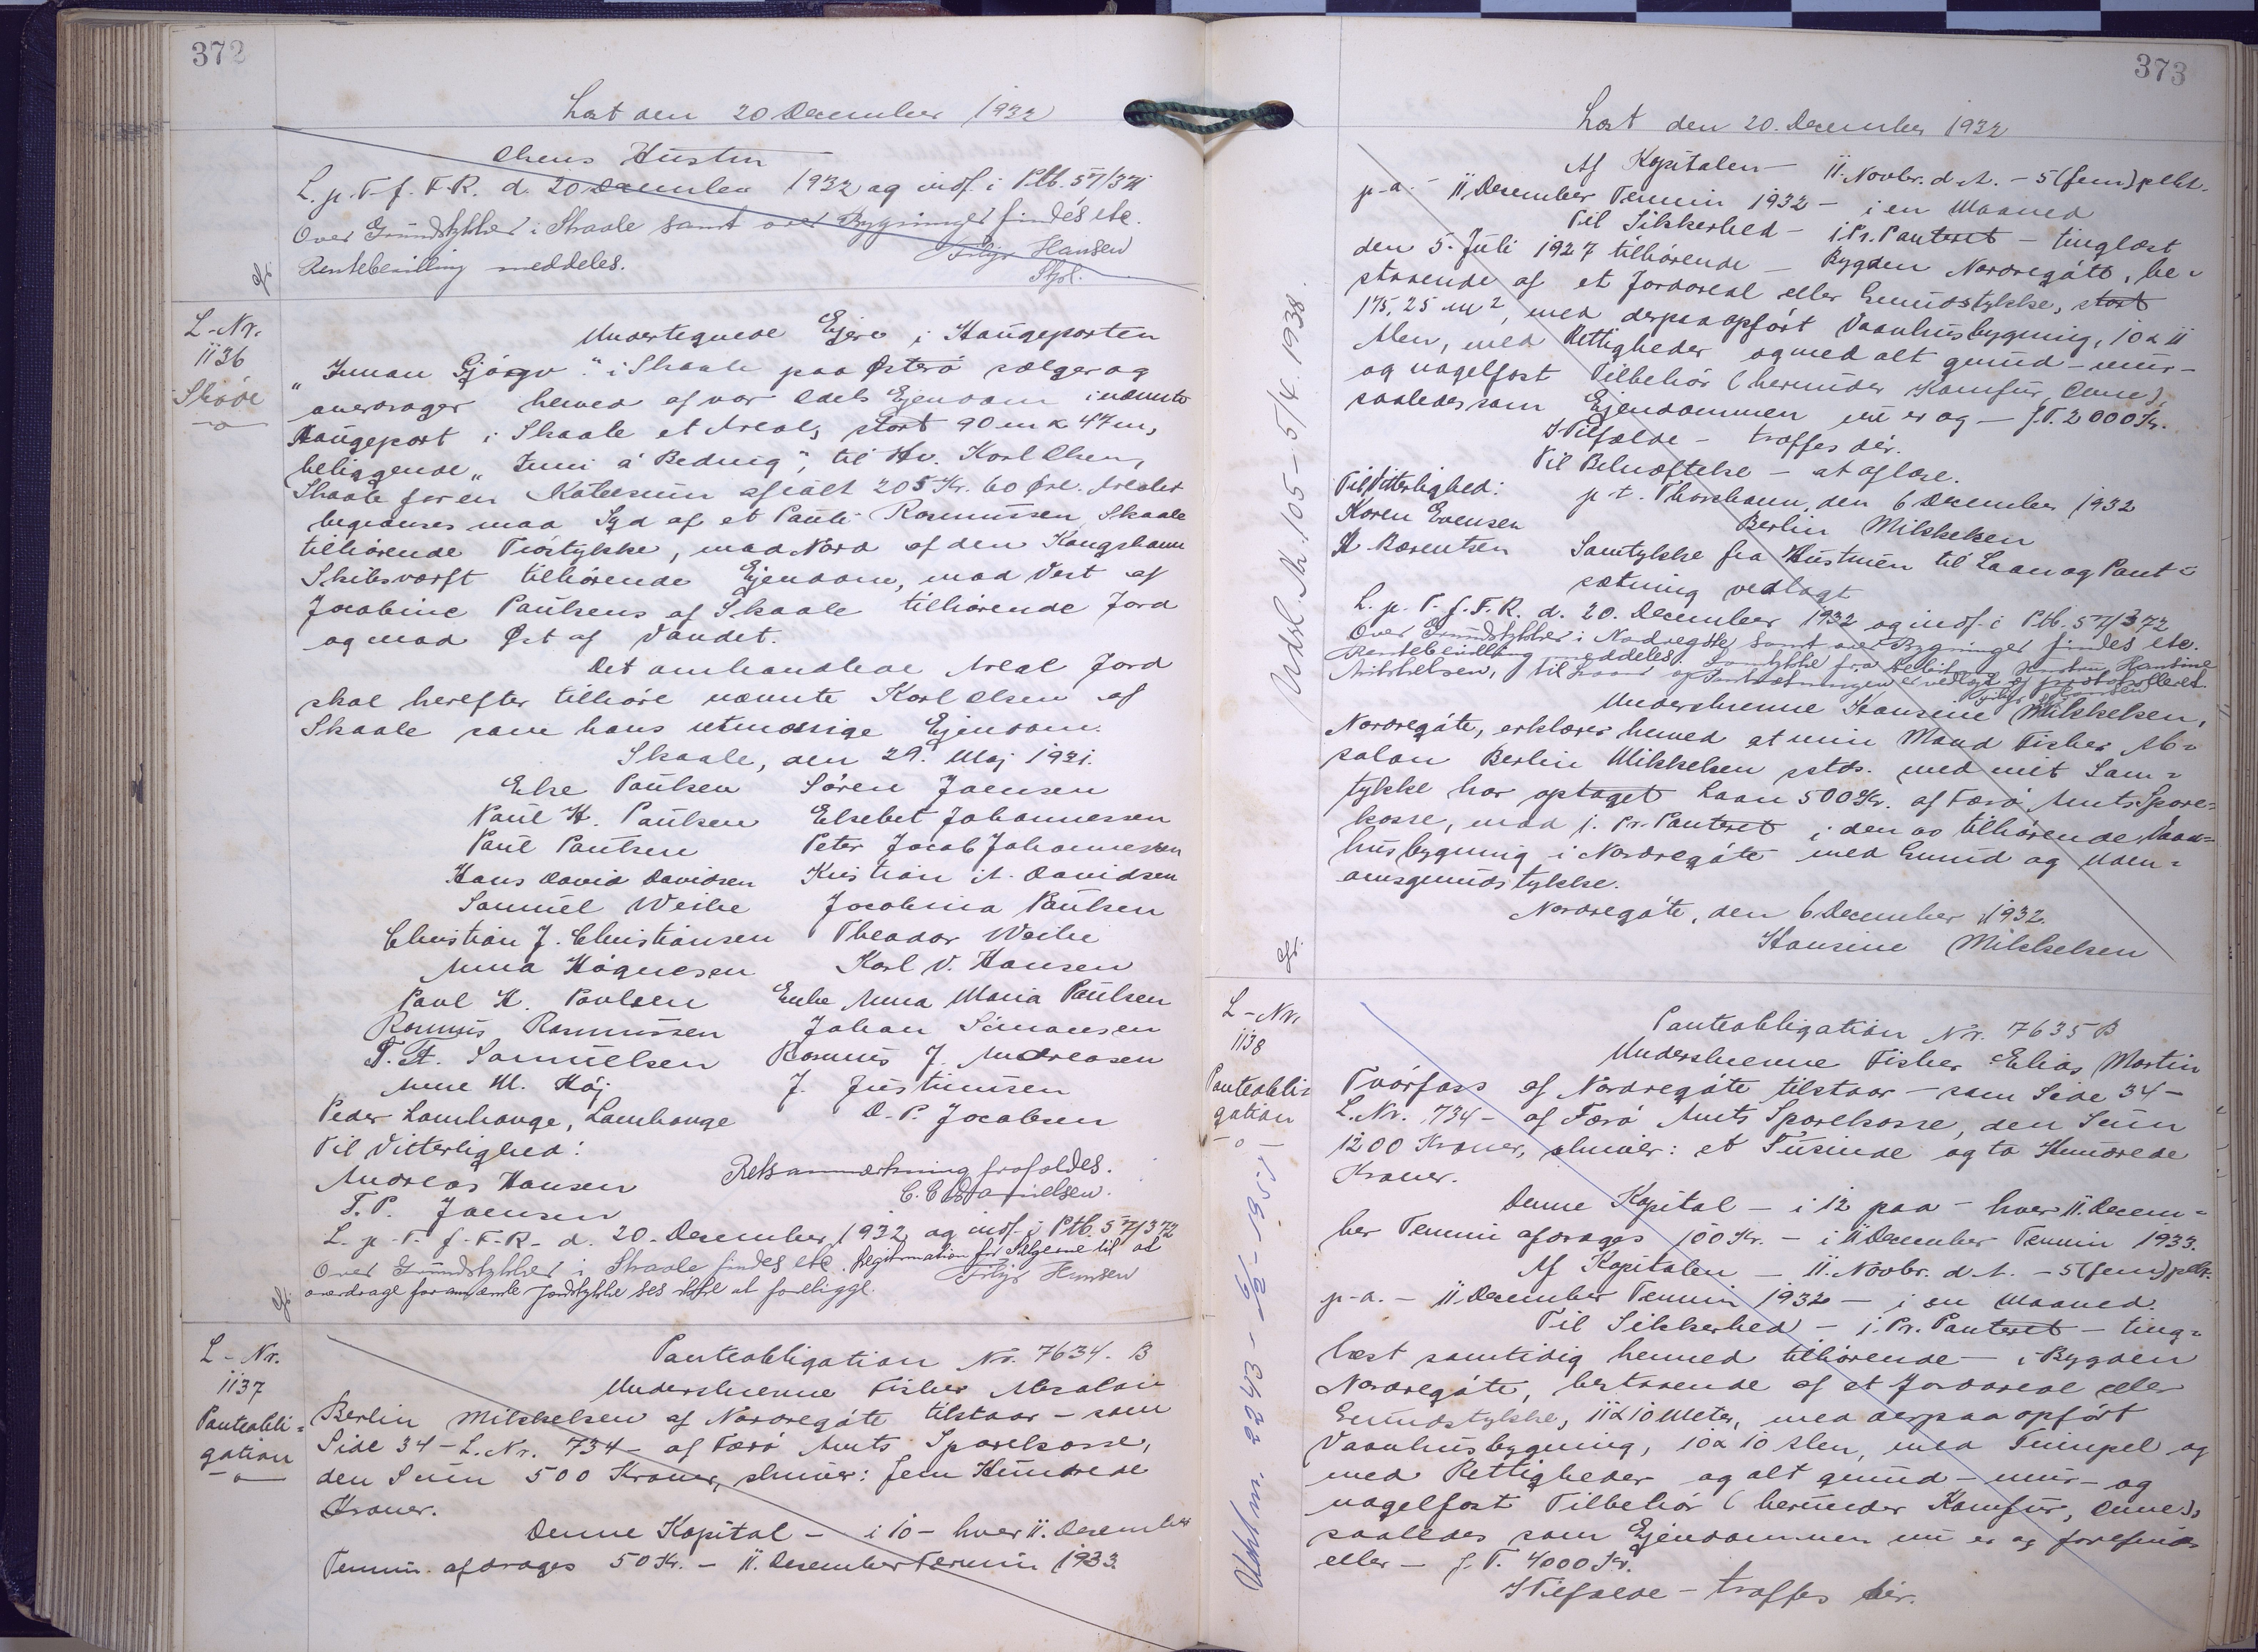 372
Læst den 20 December 1932
Olsens Hustru
L. p. T. f. F. R. d. 20 December 1932 og indf. i Ptb. 57/371
Over Grundstykker i Skaale samt over Bygninger findes etc.
Rentebevilling meddeles.
Hansen
Gb.
L-Nr.
1136
Skøde
Undertegnede Ejere i Haugeparten
"Innan Gjógv" i Skaale paa Østerø sælger og
overdrager herved af vor Odels Ejendom i nævnte
Haugepart i Skaale et Areal, stort 90 m x 47 m,
beliggende "Inni á Bednig", til Hr. Karl Olsen,
Skaale for en Købesum afialt 205 Kr. 60 Øre. Arealet
begrænses mod Syd af et Pauli Rasmussen, Skaale
tilhørende Trøstykke, mod Nord af den Kongshavn
Skibsværft tilhørende Ejendom, mod Vest af
Jacobine Paulsens af Skaale tilhørende Jord
og mod Øst af Vandet.
Det omhandlede Areal Jord
skal herefter tilhøre nævnte Karl Olsen af
Skaale som hans retmæssige Ejendom.
Skaale, den 29. Maj 1931.
Else Paulsen Søren Joensen
Paul H. Paulsen Elsebet Johannessen
Paul Paulsen Peter Jacob Johannesen
Hans David Davidsen Kristian A. Davidsen
Samuel Weihe Jacobina Paulsen
Christian J. Christiansen Theodor Weihe
Anna Högnesen Karl V. Hansen
Paul H. Poulsen Enke Anna Maria Paulsen
Rasmus Rasmussen Johan Simonsen
T. A. Samuelsen Rasmus J. Andreasen
Anne M. Høj J. Justinussen
Peder Lamhauge, Lamhauge D. P. Jacobsen
Til Vitterlighed:
Andreas Hansen Retsanmærkning frafaldes.
T. P. Joensen C. E. Danielsen.
L. p. T. f. F. R. d. 20. December 1932 og indf. i Ptb. 57/372
Over Grundstykker i Skaale findes etc. Legitimation for Sælgerne til at
overdrage foran nævnte Jordstykke ses ikke at foreligge. Hansen
Gb.
L-Nr.
1137
Panteobli=
gation
Panteobligation Nr. 7634. B
Underskrevne Fisker Absalon
Berlin Mikkelsen af Nordregøte tilstaar - som
Side 34 - L. Nr. 734 - af Færø Amts Sparekasse,
den Sum 500 Kroner, skriver: fem Hundrede
Kroner.
Denne Kapital - i 10 - hver 11. December
Termin afdrages 50 Kr. - 11. December Termin 1933.
373
Læst den 20. December 1932
Af Kapitalen - 11. Novbr. d. A. - 5 (fem) pCt.
p. a. - 11 December Termin 1932 - i en Maaned
Til Sikkerhed - i. Pr. Panteret - tinglæst
den 5. Juli 1927 tilhørende - Bygden Nordregøte, be-
staaende af et Jordareal eller Grundstykke, stort
175,25 m2, med derpaa opført Vaanhusbygning, 10 x 11
Alen, med Rettigheder og med alt grund - mur -
og nagelfast Tilbehør (herunder Komfur, Ovne),
saaledes som Ejendommen nu er og - f. T. 2000 Kr.
I Tilfælde - træffes dér.
Til Bekræftelse - at aflæse.
Til Vitterlighed: p. t. Thorshavn, den 6 December 1932
Karen Evensen Berlin Mikkelsen
H. Bærentsen Samtykke fra Hustruen til Laan og Pant=
sætning vedlagt
L. p. T. f. F. R. d. 20. December 1932 og indf. i Ptb. 57/372
Over Grundstykker i Nordregøte samt over Bygninger findes etc.
Rentebevilling meddeles. Samtykke fra Debitors Hustru Hansine
Mikkelsen, til Laan og Pantsætningen er vedlagt og protokolleret.
Underskrevne Hansine Mikkelsen,
Nordregøte, erklærer herved at min Mand Fisker Ab=
salon Berlin Mikkelsen sstds. med mit Sam=
tykke har optaget Laan 500 Kr. af Færø Amts Spare=
kasse, mod i. Pr. Panteret i den os tilhørende Vaan=
husbygning i Nordregøte med Grund og Uden=
omsgrundstykke.
Nordregøte, den 6 December 1932.
Hansine Mikkelsen
Gb.
Udsl. Nr. 105 - 5/4 1938.
L-Nr.
1138
Panteobli=
gation
Panteobligation Nr. 7635 B
Underskrevne Fisker Elias Martin
Tvørfoss af Nordregøte tilstaar - som Side 34 -
L. Nr. 734 - af Færø Amts Sparekasse, den Sum
1200 Kroner, skriver: et Tusinde og to Hundrede
Kroner.
Denne Kapital - i 12 paa - hver 11. Decem=
ber Termin afdrages 100 Kr. - i 11 December Termin 1933.
Af Kapitalen - 11. Novbr. d. A. - 5 (fem) pCt.
p. a. - 11 December Termin 1932 - i en Maaned.
Til Sikkerhed - i. Pr. Panteret - ting=
læst samtidig hermed tilhørende - i Bygden
Nordregøte, bestaaende af et Jordareal eller
Grundstykke, 11 x 10 Meter, med derpaa opført
Vaanhusbygning, 10 x 10 Alen, med Tilbehør og
med Rettigheder og alt grund - mur - og
nagelfast Tilbehør (herunder Komfur, Ovne),
saaledes som Ejendommen nu er og forefindes
eller - f. T. 4000 Kr.
I Tilfælde - træffes dér.